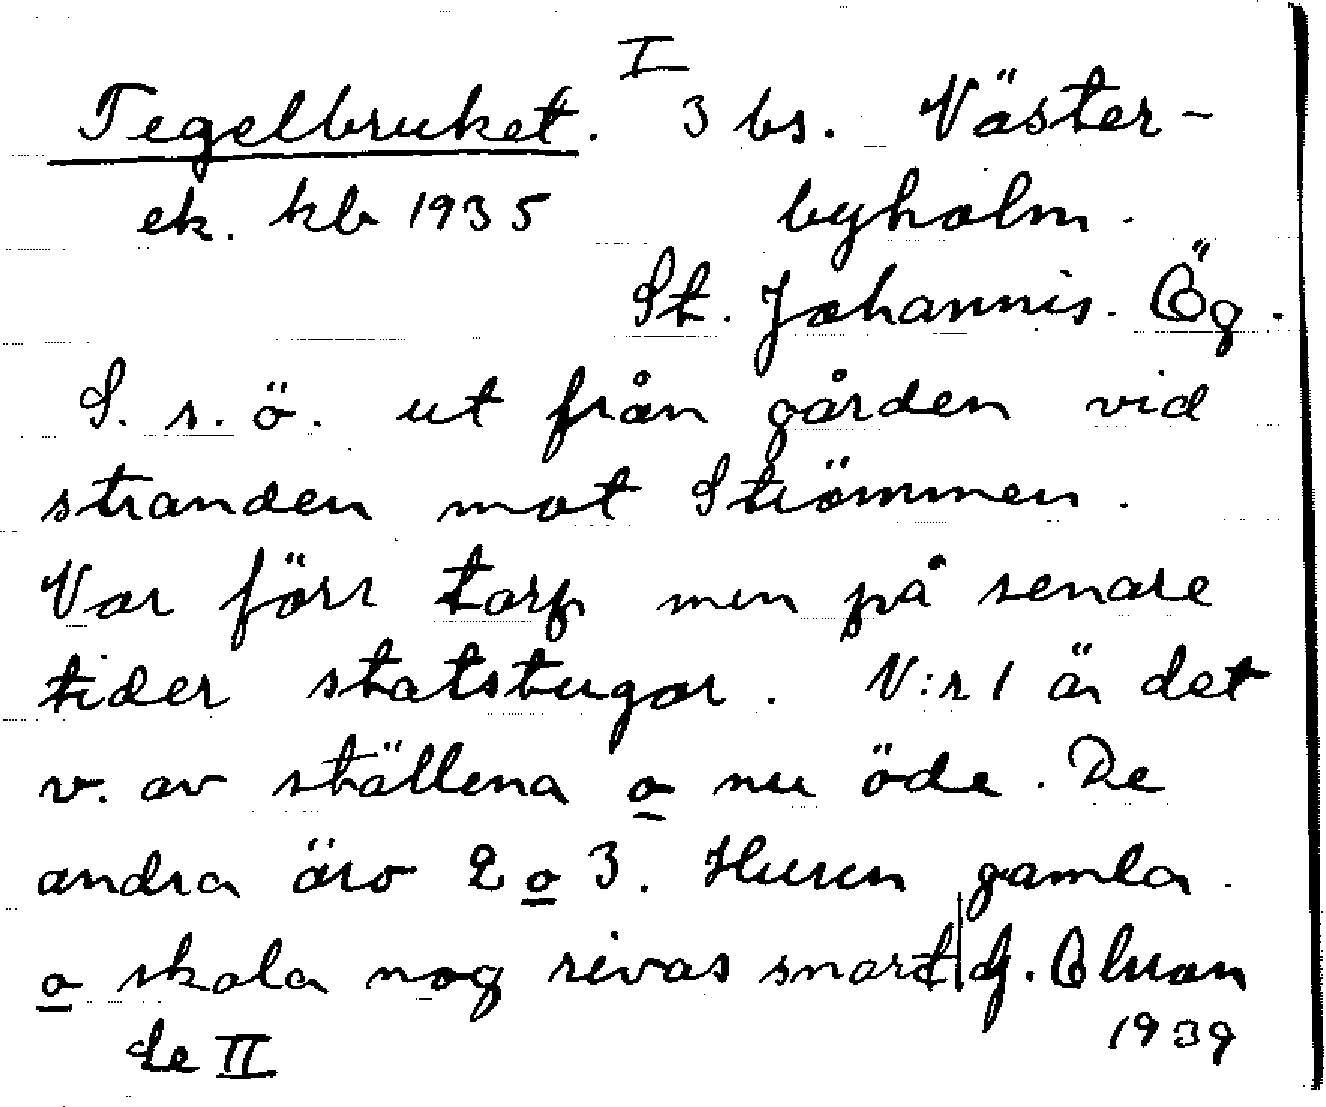 I
Tegelbruket. 3 bs. Väster-
ek. kb 1935 byholm.
St. Johannis. Ög.
S. s. ö. ut från gården vid
stranden mot Strömmen.
Var förr torp men på senare
tider statstugor. N:r 1 är det
v. av ställena o nu öde. De
andra äro 2 o 3. Husen gamla
o skola nog rivas snart G.
1939
Se II